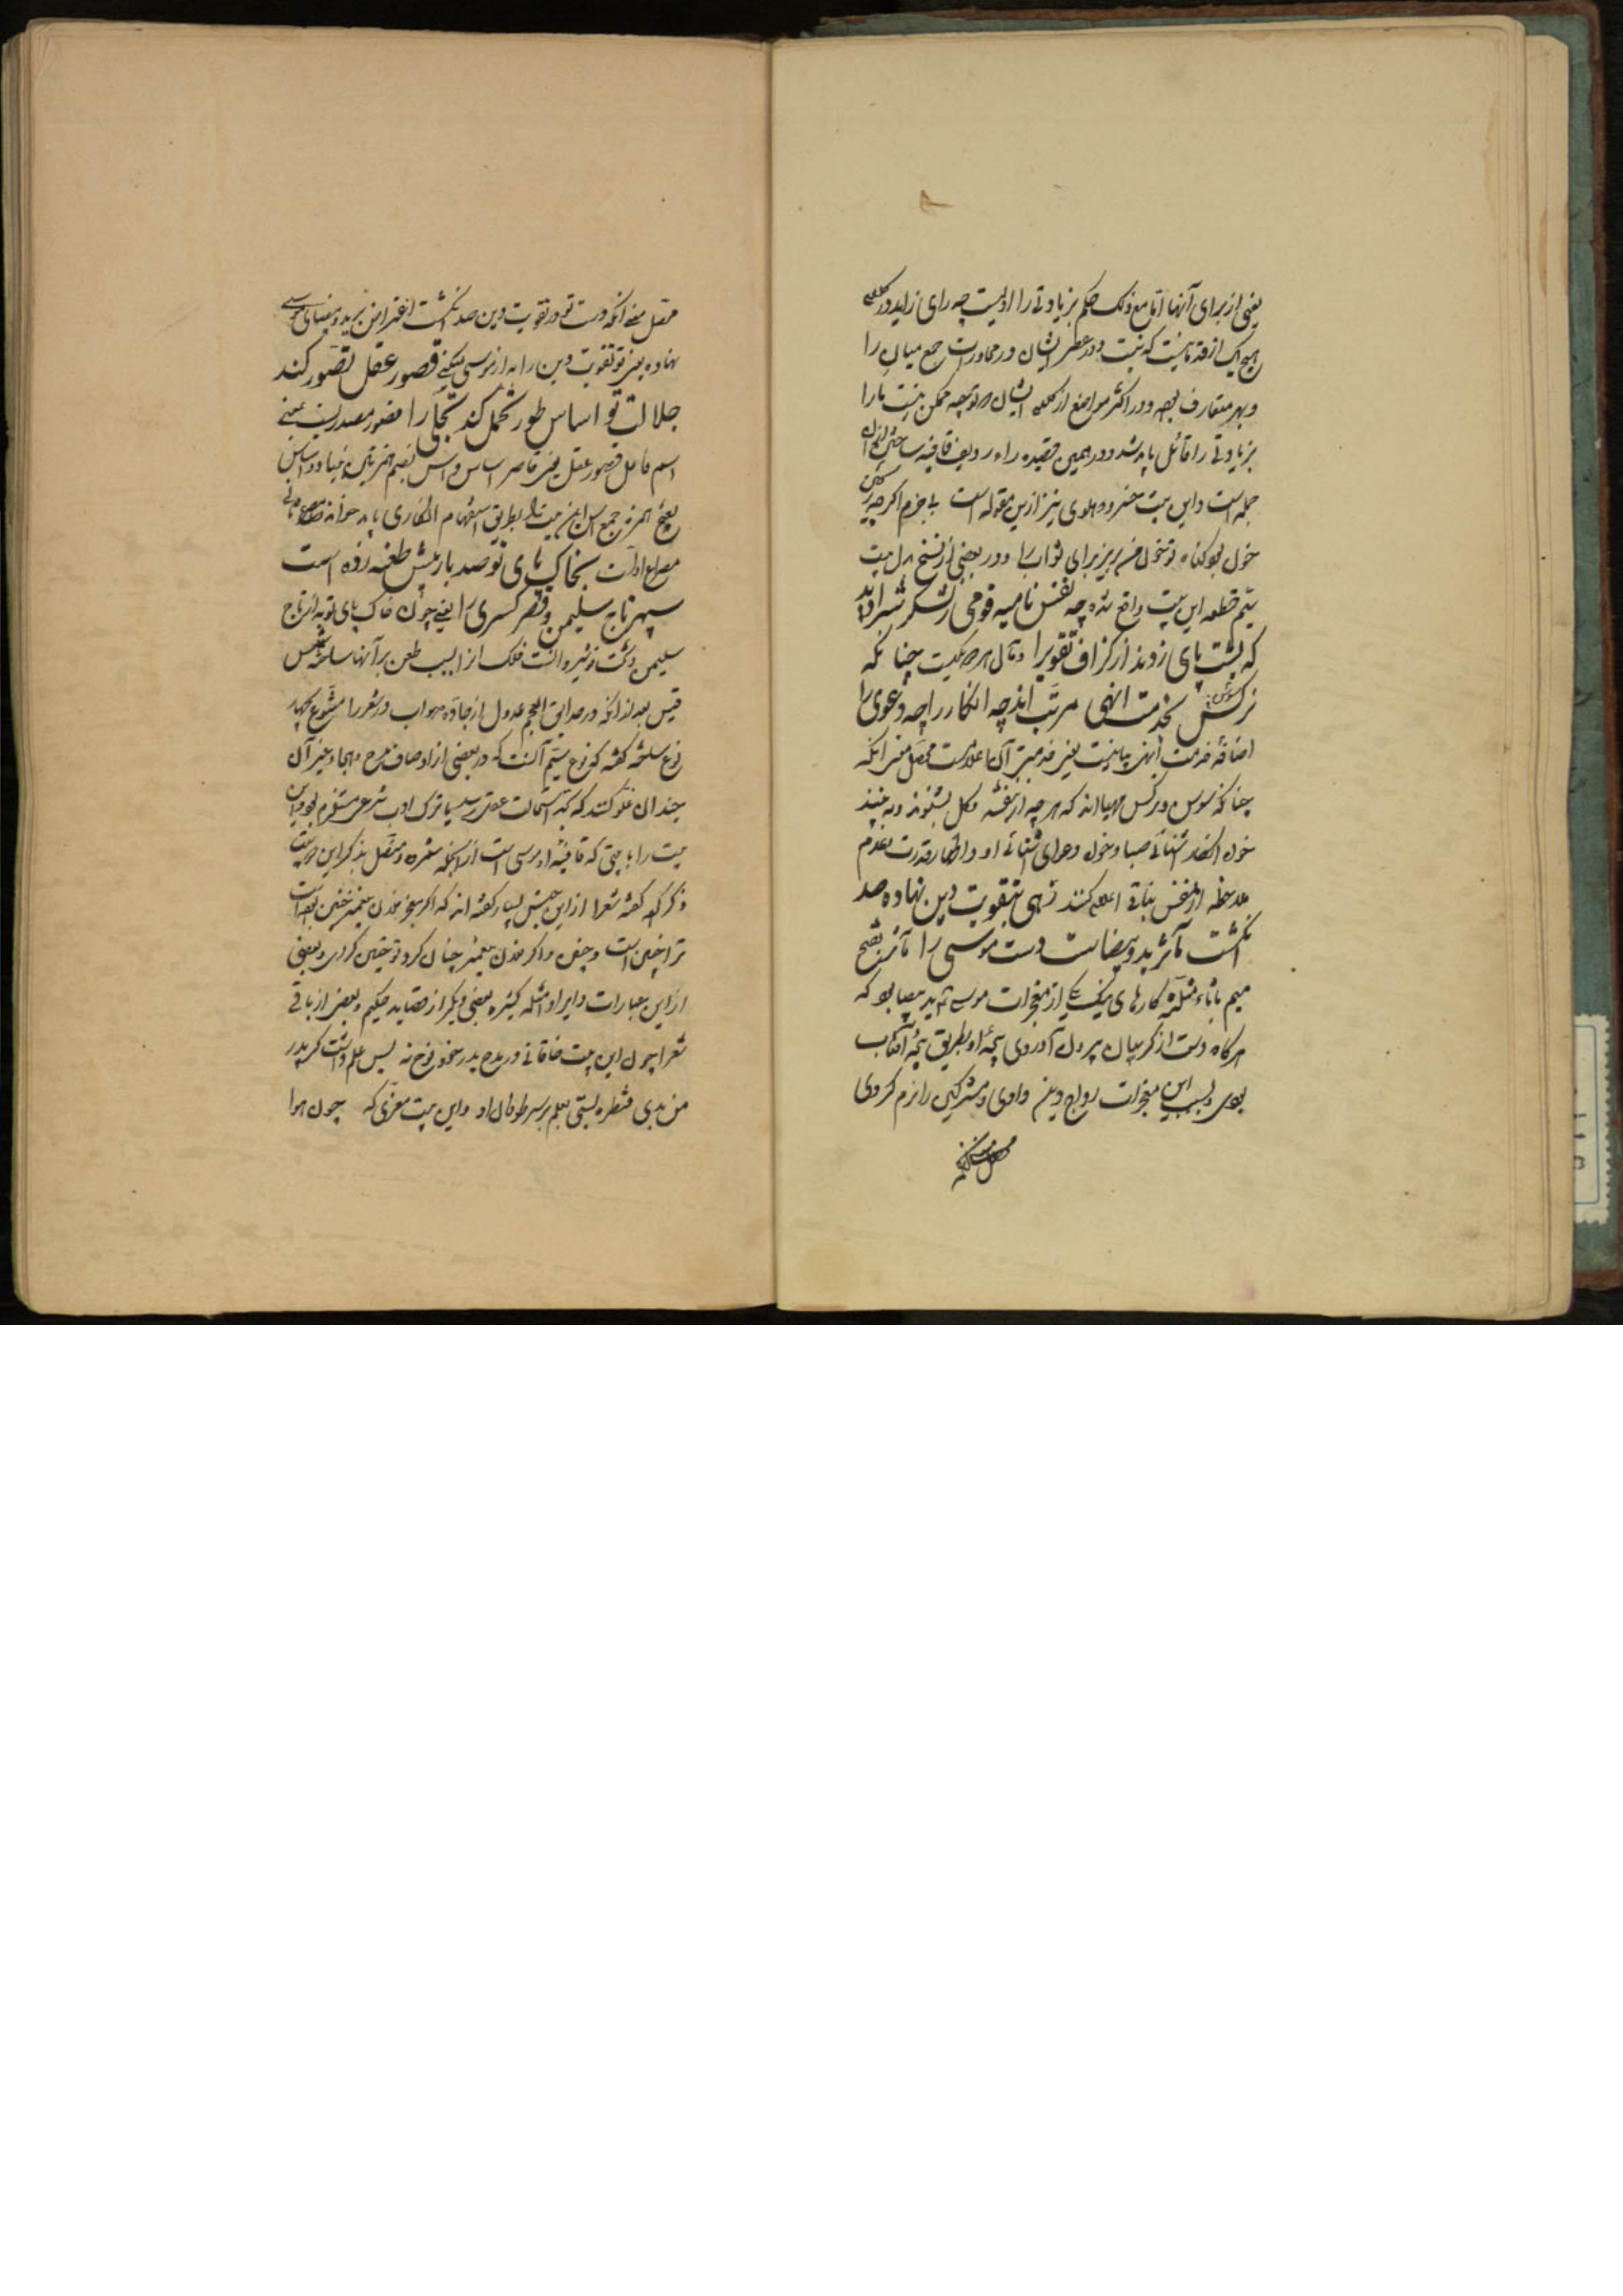 یعنی از برای آنها اما مع ذلک حکم بزیادتی را اولیست چه رای زاید در کلام
هیچ یک از قدما نیست که نیست و در عصر ایشان در محاورات جمع میان را
و بهر متعارف بوده و در اکثر مواضع از کلام ایشان توجیه ممکن نیست تا را
بزیادتی را قائل باید شد و در همین قصیده را در ردیف قافیه ساختن از آن
جمله است و این بیت خسرو دهلوی نیز ازین مقوله است بی جرم اگر چه ریختن
خون بود گناه تو خون من بریز برای ثواب را و در بعضی از نسخ بدل بیت
سیّم قطعه این بیت واقع شده چه نفس نامیه قومی ز لشکر شمراند
که پشت پای زدند از گزاف تقویرا و مآل هر دو یکیست چنانکه
نرگس بخدمت انهی مرتب اند چه انکار را چه دعوی را
اضافهٔ خدمت انهی بیانیست یعنی خدمتی که آن اعلامست محصّل معنی آنکه
چنانکه سوسن و نرگس مهیااند که هر چه از بنفشه و گل بشنوند و به بینند
چون انکار آشنائی صبا و خون دعوای آشنائی او و اظهار قدرت بعدم
ملاحظه از نفس نباتی اعلام کنند زهی بتقویت دین نهاده صد
انگشت مآثر ید بیضات دست موسی را مآثر بفتح
میم با ثاء مثلثه کارهای نیک یکی از معجزات موسی ید بیضا بود که
هرگاه دست از گریبان بیرون آوردی پنجهٔ او بطریق پنجهٔ آفتاب
بودی و بسبب این معجزات رواج دین دادی و مشرکین را نرم کردی
محصل معنی آنکه
محصل معنی آنکه دست تو در تقویت دین صد انگشت اعتراض بر ید بیضای موسی
نهاده یعنی تو تقویت دین را به از موسی میکنی قصور عقل تصور کند
جلالت تو اساس طور تحمل کند تجلّی را قصور مصدریست بمعنی
اسم فاعل قصور عقل یعنی قاصر اساس و اس بضم همزه بنیاد و اساس
بفتح همزه جمع اس این بیت را بطریق استفهام انکاری باید خواند مصرع ثانی
مصراع اول است بخاک پای تو صد بار بیش طعنه زده است
سپهر تاج سلیمن و قصر کسری را یعنی چون خاک پای تو به از تاج
سلیمن و تخت نوشیروانست فلک از این سبب طعن بر آنها سلخه شمس
قیس بعد از آنکه در حدایق العجم عدول از جادّه صواب در شعر را متنوع بچهار
نوع ساخته گفته که نوع سیّم آنست که در بعضی از اوصاف مدح و هجا و غیر آن
چندان غلو کنند که بحد استحالت عقلی رسد یا ترک ادب شرعی مستلزم بود و این
بیت را با بیتی که قافیهٔ او موسی است از آن جمله شمرده و متصل بذکر این دو بیت
ذکر کرده گفته شعرا از این جنس بسیار گفته اند که اگر معجز فلان پیغمبر چنین بوده است
ترا چنین است و چنین و اگر فلان پیغمبر چنان کرد تو چنین کردی و بعضی
از این عبارات و ایراد امثلهٔ کثیره بعضی دیگر از قصاید حکیم و بعضی از باقی
شعرا چون این بیت خاقانی در مدح پدر سخنور نوح نه پس علم داشت گر پدر
من بدی قنطره بستی بعلم بر سر طوفان او و این بیت معزی که چون هوا